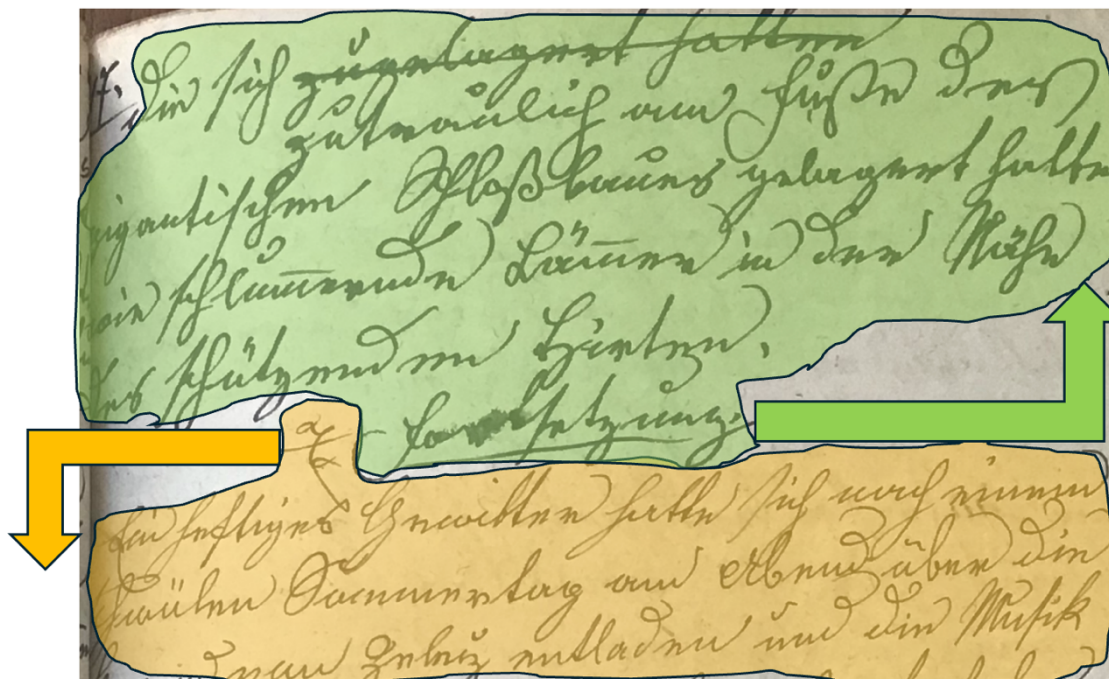 die sich zugelagert hatten
zutraulich am Fuße des
gigantischen Schloßbaues gelagert hatte
wie schlum̅ernde Läm̅er in der Nähe
des schützenden Hirten.
Fortsetzung.
Ein heftiges Gewitter hatte sich nach einem
schwülen Sommertag am Abend über die
entladen und die Musik